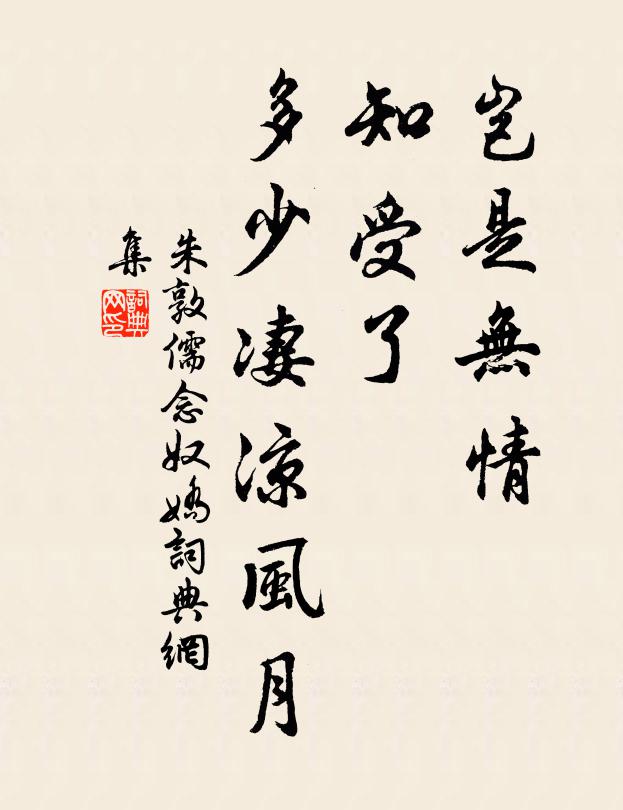 豈是無情
知受了
多少凄涼風月
朱敦儒念奴嬌詞典網
集
詞典
网印